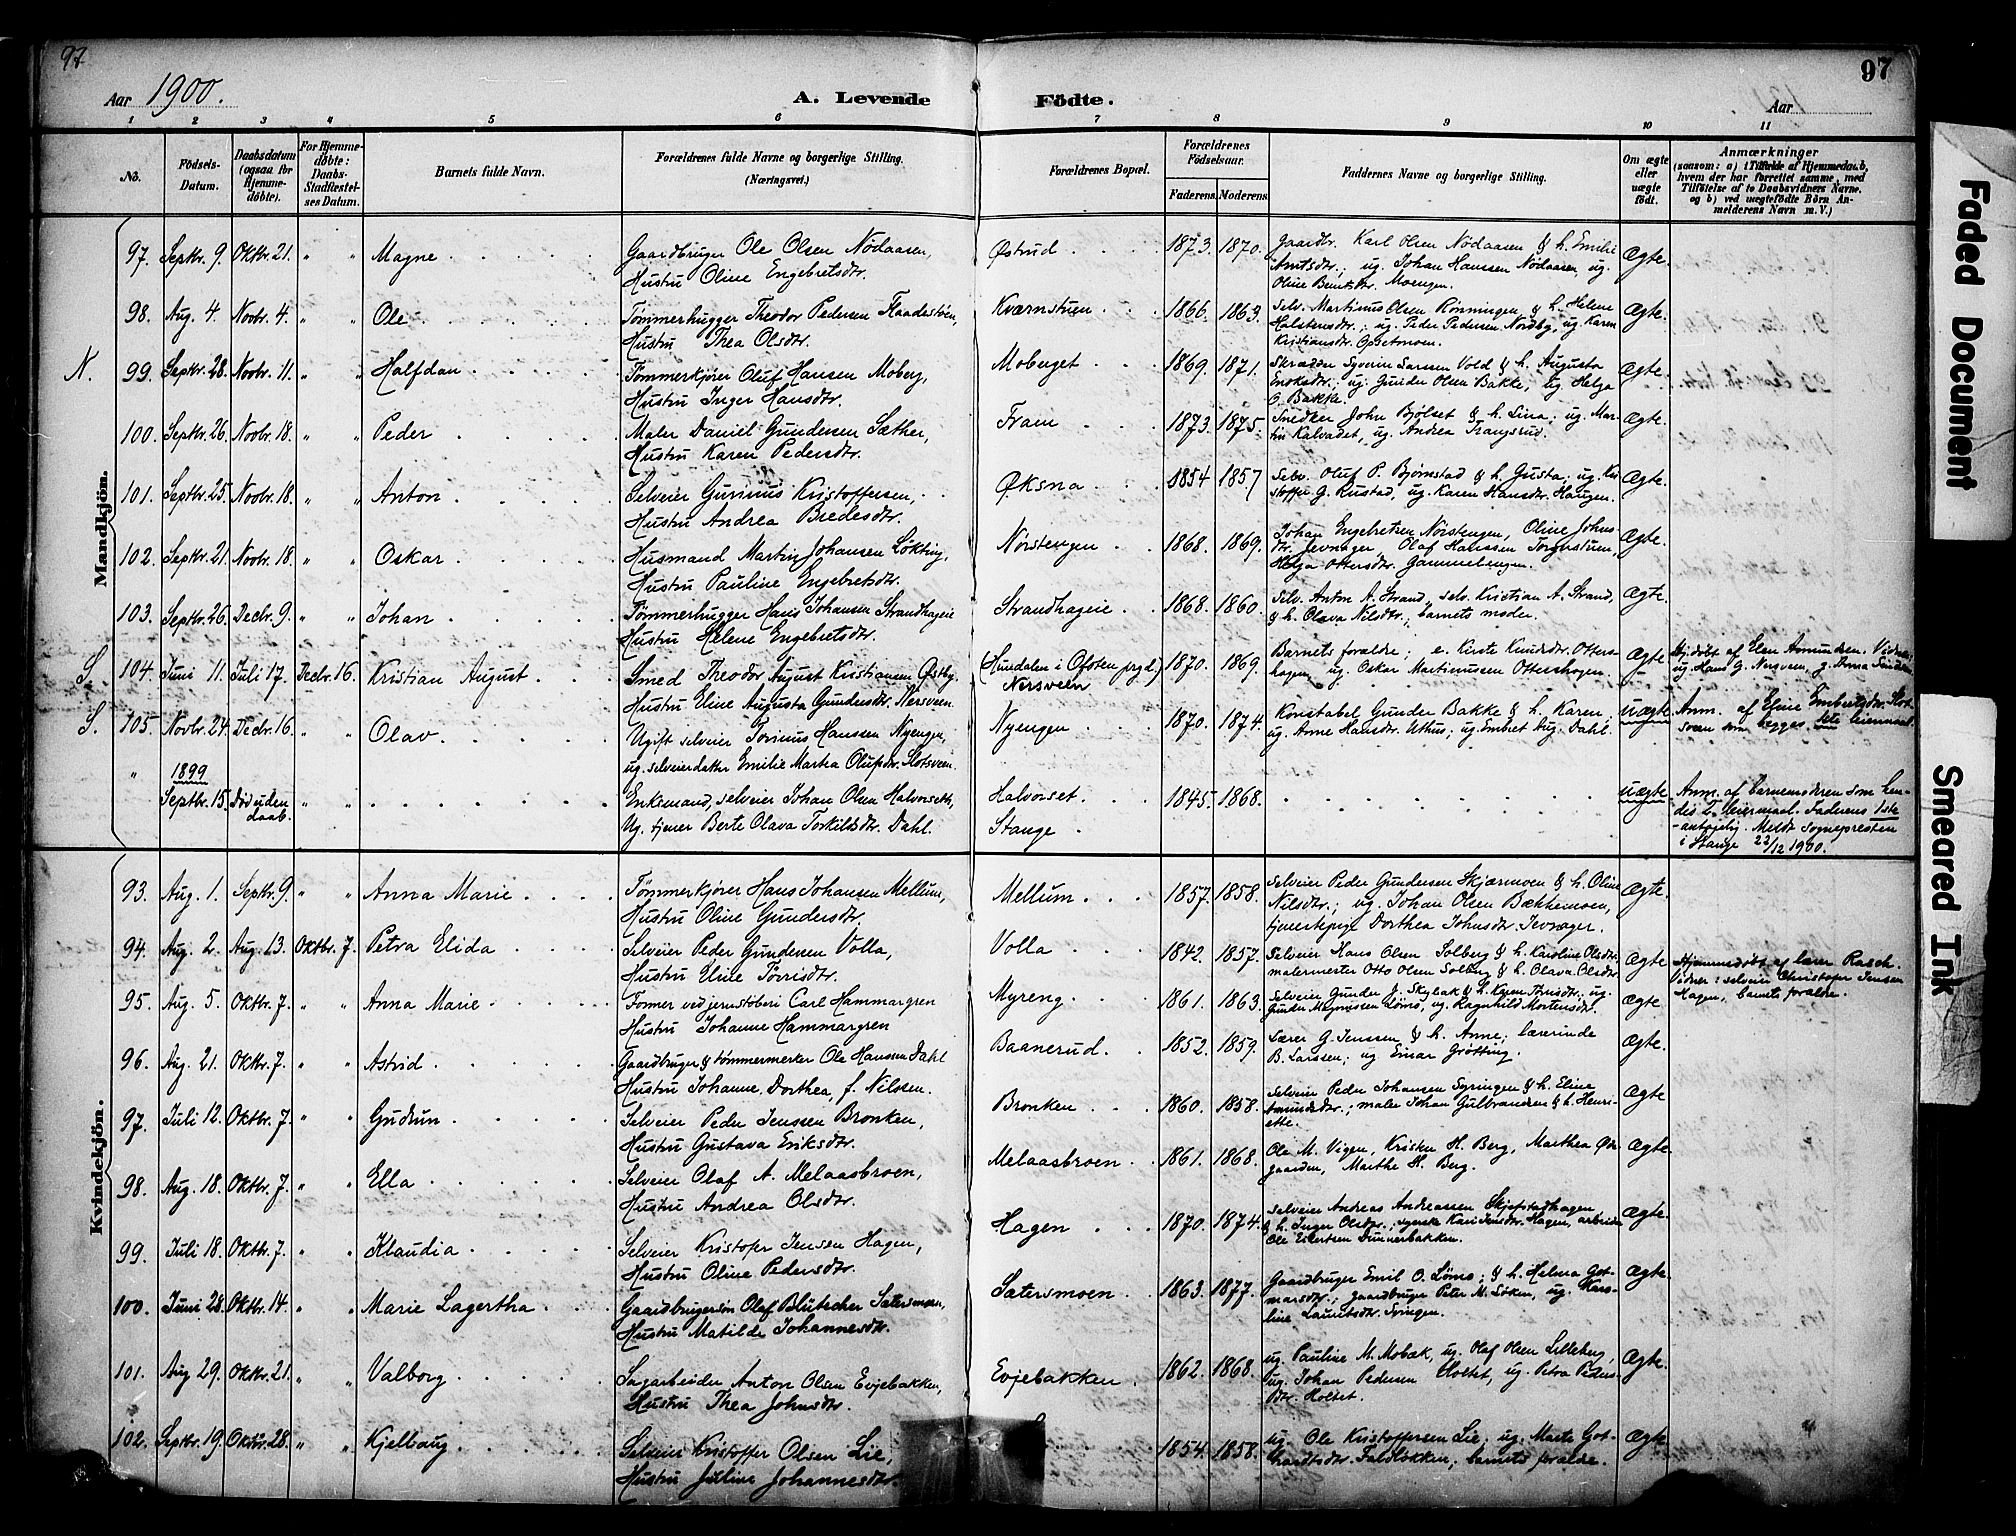 97
97
Aar 1900.
A. Levende Födte.
Aar
1 2 3 4 5 6 7 8 9 10 11
No.
Födsels-Datum.
Daabsdatum (ogsaa for Hjemme-döbte).
For Hjemme-döbte: Daabs-Stadfæstelses Datum.
Barnets fulde Navn.
Forældrenes fulde Navne og borgerlige Stilling. (Næringsvei.)
Forældrenes Bopæl.
Forældrenes Födselsaar.
Faderens. Moderens.
Faddernes Navne og borgerlige Stilling.
Om ægte eller uægte födt.
Anmærkninger
(saasom: a) i Tilfælde af Hjemmedaab,
hvem der har forrettet samme, med
Tilföielse af to Daabsvidners Navne.
og b) ved uægtefödte Börn An-
melderens Navn m.V.)
Mandkjön.
97. Septbr. 9. Oktbr. 21. " " Magne
Gaardbruger Ole Olsen Nödaasen,
Hustru Oline Engebretsdtr.
Østrud 1873. 1870.
Gaardbr. Karl Olsen Nödaasen & h. Emilie
Amtsdtr.; ug. Johan Hanssen Nödaasen, ug.
Oline Berntsdtr. Moengen.
Ægte.
98. Aug. 4. Novbr. 4. " " Ole
Tømmerhugger Theodor Pedersen Flaadestöen,
Hustru Thea Olsdtr.
Kværnstuen 1866. 1863.
Selv. Martinus Olsen Rønningen & h. Helene
Halstensdtr.; ug. Peder Pedersen Nordby, ug. Karen
Kristiansdtr. Opsetmoen.
Ægte.
N. 99. Septbr. 28. Novbr. 11. " " Halfdan
Tømmerkjører Oluf Hansen Moberg,
Hustru Inger Hansdtr.
Moberget 1869. 1871.
Skrædder Syverin Larssen Vold & h. Augusta
Enoksdtr.; ug. Gunder Olsen Bakke, ug. Helga
O. Bakke.
Ægte.
100. Septbr. 26. Novbr. 18. " " Peder
Maler Daniel Gundersen Sæther,
Hustru Karen Pedersdtr.
Fram 1873. 1875.
Snedker John Bjølset & h. Lina; ug. Mar-
tin Kalvadet, ug. Andrea Trangsrud.
Ægte.
101. Septbr. 25. Novbr. 18. " " Anton
Selveier Gunnius Kristoffersen,
Hustru Andrea Bredesdtr.
Øksna 1854 1857
Selv. Oluf P. Bjørnstad & h. Gusta; ug. Kri-
stoffer G. Rustad, ug. Karen Hansdtr. Haugen.
Ægte.
102. Septbr. 21. Novbr. 18. " " Oskar
Husmand Martin Johansen Løkting,
Hustru Pauline Engebretsdtr.
Nørstengen 1868. 1869.
Johan Engebretsen Nørstengen, Oline Johns-
dtr. Jevnager, Olaf Hanssen Torgerstuen,
Helga Ottersdtr. Gammelengen.
Ægte.
103. Septbr. 26. Decbr. 9. " " Johan
Tømmerhugger Hans Johansen Strandhageie
Hustru Helene Engebretsdtr.
Strandhageie 1868. 1860.
Selv. Anton A. Strand, selv. Kristian A. Strand,
& h. Olava Nilsdtr.; barnets moder.
Ægte.
S 104. Juni 11. Juli 17. Decbr. 16. Kristian August
Smed Theodor August Kristiansen Østby
Hustru Eline Augusta Gundersdtr. Nersveen.
(Hundalen i Ofoten prgd.) Nersveen 1870. 1869.
Barnets forældre; e. Kirste Knudsdtr. Otters-
hagen, ug. Oskar Martinusen Ottershagen.
Ægte
Hj.døbt af Elen Amundsen. Vidner:
ug. Hans G. Nersveen, g. Anna
S. 105. Novbr. 24. Decbr. 16. " " Olav
Ugift selveier Torinus Hanssen Nyengen,
ug. selveierdatter Emilie Martea Olufsdtr. Slotsveen.
Nyengen 1870. 1874.
Konstabel Gunder Bakke & h. Karen;
ug. Anne Hansdtr. Uthus; ug. Embret Aug. Dahl.
uægte
Anm. af Eline Embretsdtr. Slot-
sveen som begges 1ste leiermaal.
" 1899 Septbr. 15. Død uden daab. " "
Enkemand, selveier Johan Olsen Halvorseth,
Ug. tjener Berte Olava Torkildsdtr. Dahl.
Halvorset. Stange 1845. 1868.
uægte
Anm. af barnemoderen som hen-
des 2. leiermaal. Faderens 1ste
- antagelig. Meldt sognepresten
i Stange 22/12 1900.
Kvindekjön.
93. Aug. 1. Septbr. 9. " " Anna Marie
Tømmerkjører Hans Johansen Mellum,
Hustru Oline Gundersdtr.
Mellum 1857. 1858.
Selveier Peder Gundersen Skjærmoen & h. Oline
Nilsdtr.; ug. Johan Olsen Bækkemoen,
tjenestepige Dorthea Johnsdtr. Jevnager.
Ægte.
94. Aug. 2. Aug. 13. Oktbr. 7. Petra Elida
Selveier Peder Gundersen Volla,
Hustru Eline Tørrisdtr.
Volla 1842. 1857.
Selveier Hans Olsen Solberg & h. Karoline Olsdtr.
malermester Otto Olsen Solberg & h. Olava Olsdtr.
Ægte
Hjemmedøbt af lærer Rasch.
Vidner: selveier Christofer Jensen
Hagen, barnets forældre.
95. Aug. 5. Oktbr. 7. " " Anna Marie
Former ved jernstøberi Carl Hammargren
Hustru Johanne Hammargren
Myreng 1861. 1863.
Selveier Gunder J. Skybak & h. Karen Thrisdtr.; ug.
Gunder Magnussen Löms, ug. Ragnhild Mortensdtr.
Ægte.
96. Aug. 21. Oktbr. 7. " " Astrid
Gaardbruger & tømmermerker Ole Hanssen Dahl
Hustru Johanne Dorthea, f. Nilssen.
Baanerud 1852. 1859.
Lærer G. Jenssen & h. Anne; lærerinde
B. Larssen; ug. Einar Grøtting.
Ægte.
97. Juli 12. Oktbr. 7. " " Gudrun
Selveier Peder Jenssen Bronken,
Hustru Gustava Eriksdtr.
Bronken 1860. 1858.
Selveier Peder Johansen Syringen & h. Eline
Amundsdtr.; maler Johan Gulbrandsen & h. Henri-
ette.
Ægte
98. Aug. 18. Oktbr. 7. " " Ella
Selveier Olaf A. Melaasbroen,
Hustru Andrea Olsdtr.
Melaasbroen 1861. 1868.
Ole M. Vigen, Kristen H. Berg, Marthea Øv-
gaarden, Marthe H. Berg.
Ægte.
99. Juli 18. Oktbr. 7. " " Klaudia
Selveier Kristofer Jensen Hagen,
Hustru Oline Pedersdtr.
Hagen 1870. 1874.
Selveier Andreas Andreassen Skjefstadhagen
& h. Inger Olsdtr.; syerske Kari Jensdtr. Hagen, arbeider
Ole Eilertsen Dunnerbakken.
Ægte.
100. Juni 28. Oktbr. 14. " " Marie Lagertha
Gaardbrugersön Olaf Blütecher Sætersmoen,
Hustru Matilde Johannesdtr.
Sætersmoen 1863. 1877.
Gaardbruger Emil O. Löms; & h. Helma Got-
marsdtr.; gaardbruger Peter M. Løken, ug. Karo-
line Lauritsdtr. Syringen.
Ægte.
101. Aug 29. Oktbr. 21. " " Valborg
Sagarbeider Anton Olsen Evjebakken,
Hustru Thea Johnsdtr.
Evjebakken 1862. 1868.
ug. Pauline M. Mobæk, ug. Olaf Olsen Lilleberg,
ug. Johan Pedersen Holtet, ug. Petra Peders-
dtr. Holtet.
Ægte.
102. Septbr. 19. Oktbr. 28. " " Kjellaug
Selveier Kristoffer Olsen Lie,
Hustru Juline Johannesdtr.
1854. 1858.
ug. Ole Kristoffersen Lie, ug. Marte Got-
hardsdtr. Faldlökken; barnets forældre.
Ægte.
Faded Document
Smeared Ink